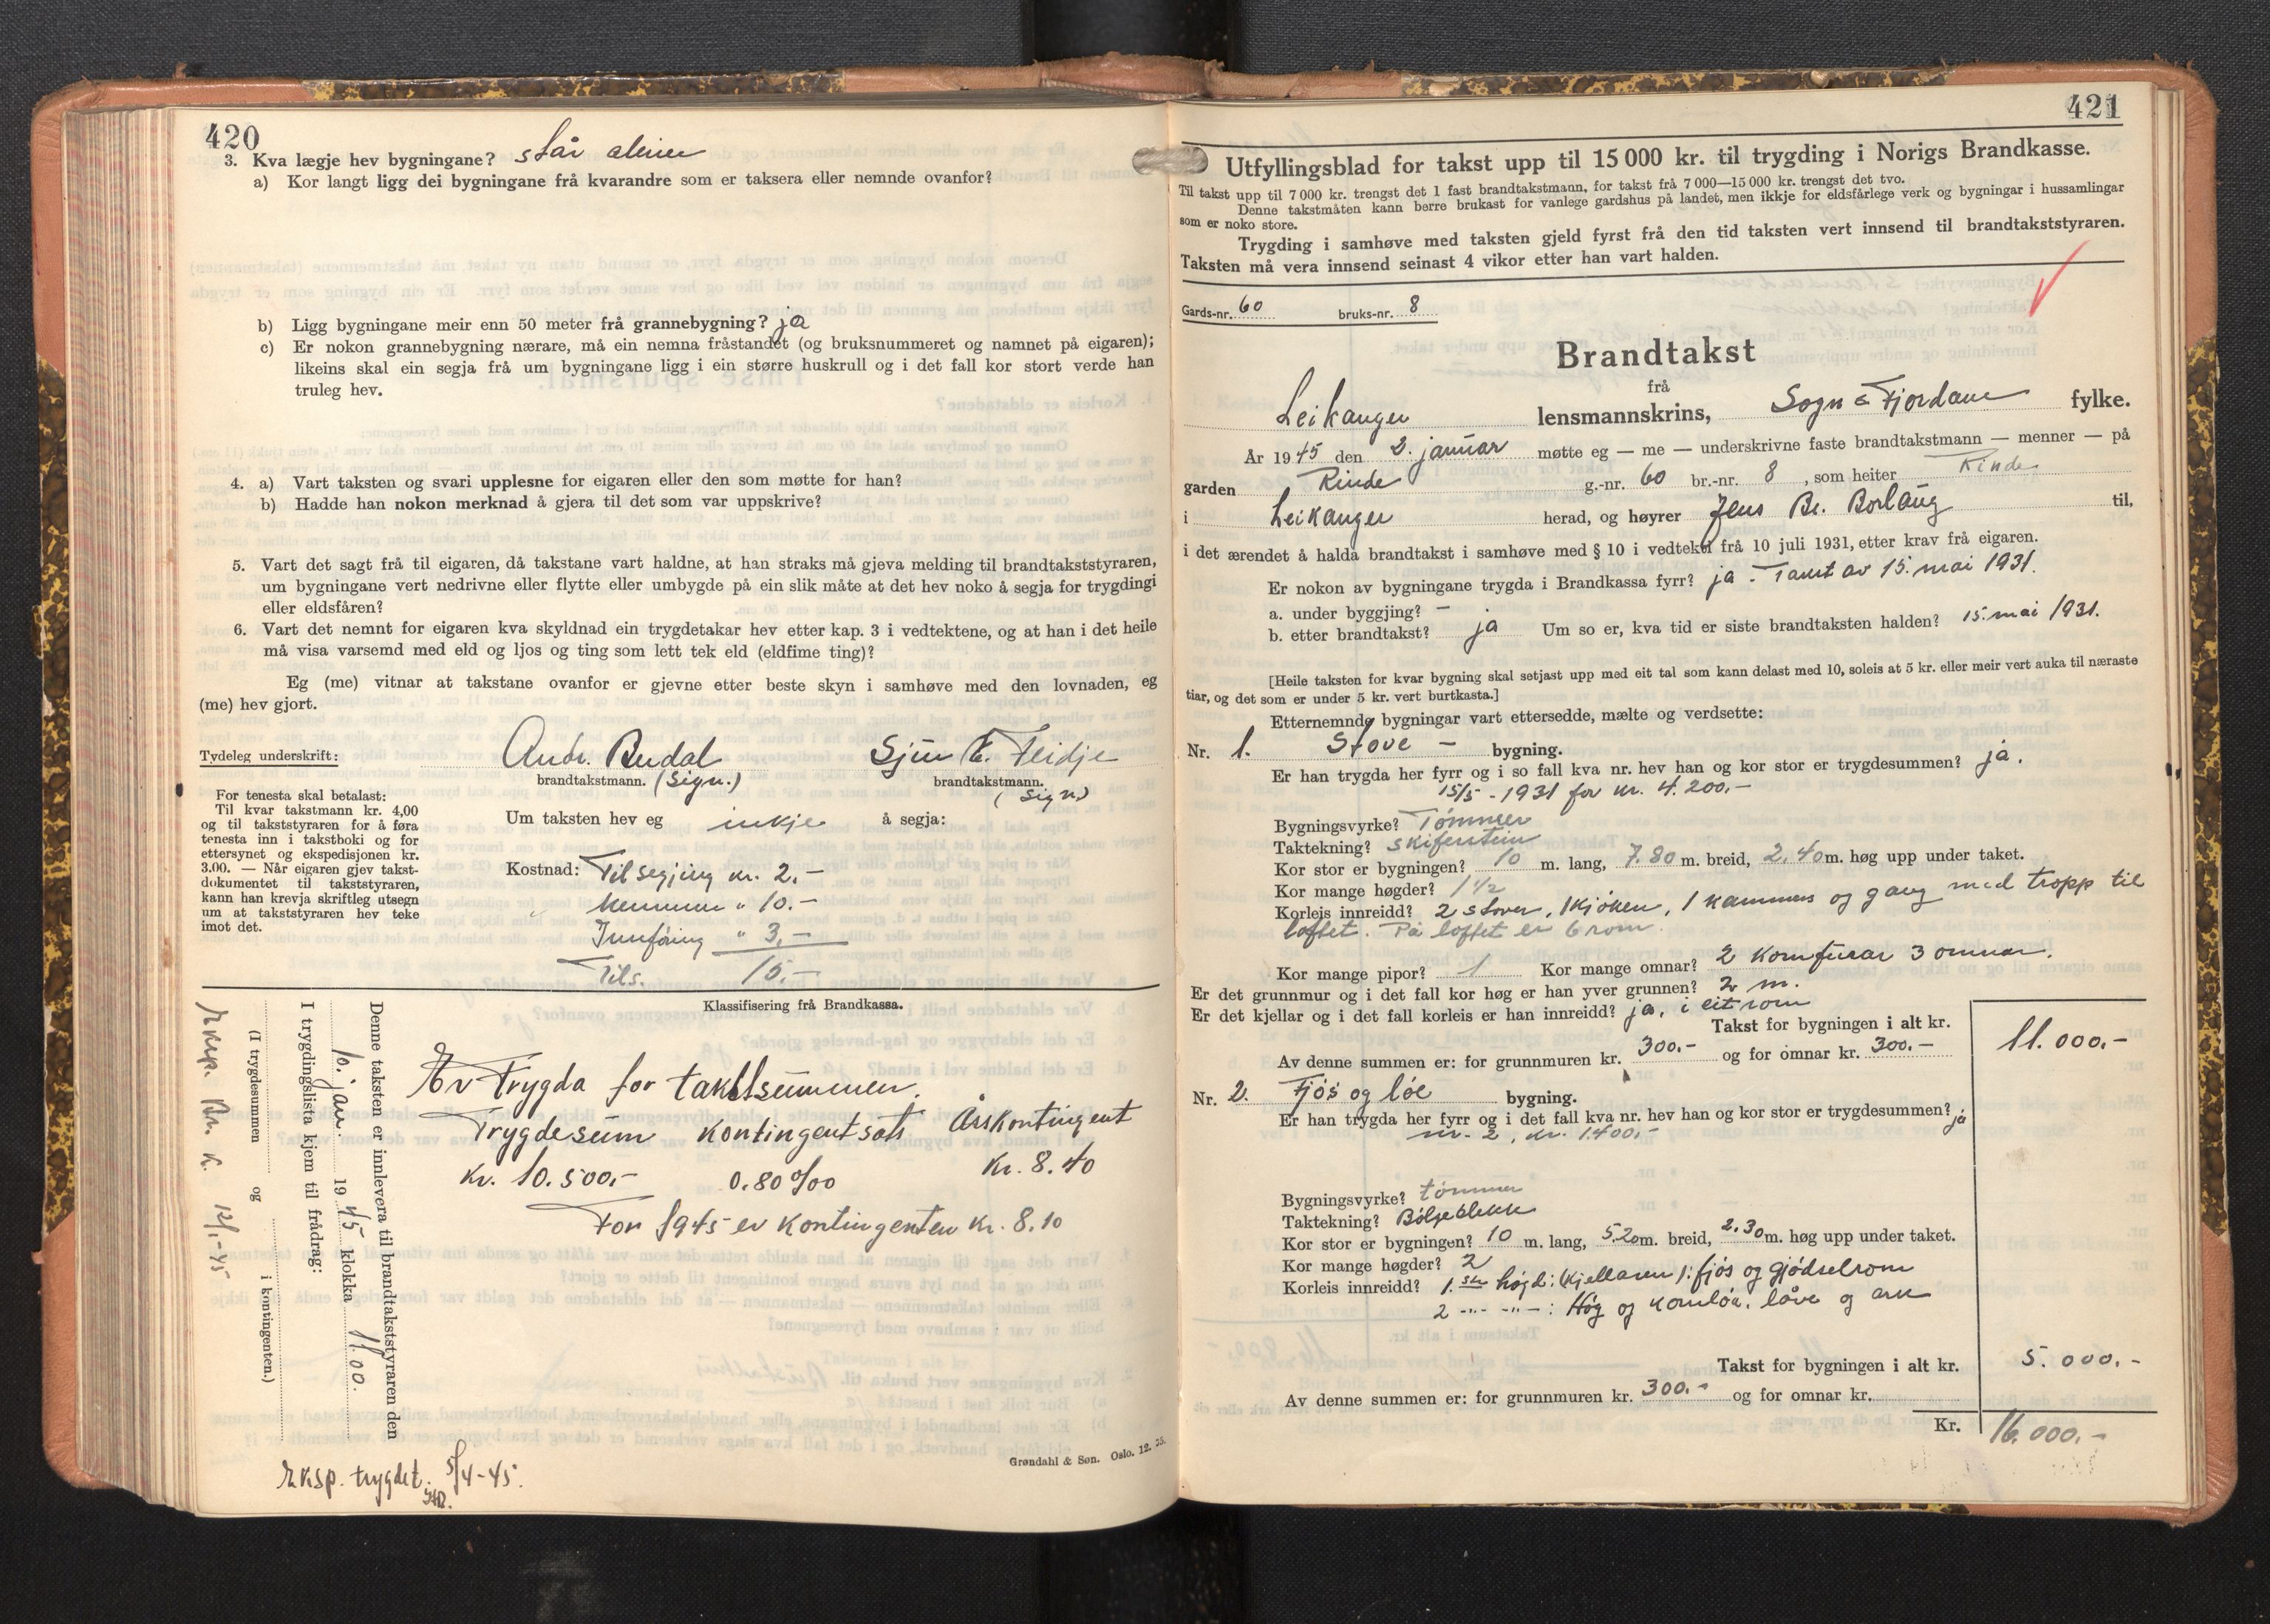 420
3. Kva lægje hev bygningane? står aleine
a) Kor langt ligg dei bygningane frå kvarandre som er taksera eller nemnde ovanfor?
b) Ligg bygningane meir enn 50 meter frå grannebygning? ja
c) Er nokon grannebygning nærare, må ein nemna fråstandet (og bruksnummeret og namnet på eigaren);
likeins skal ein segja frå um bygningane ligg i ein større huskrull og i det fall kor stort verde han
truleg hev.
4. a) Vart taksten og svari upplesne for eigaren eller den som møtte for han?
b) Hadde han nokon merknad å gjera til det som var uppskrive?
5. Vart det sagt frå til eigaren, då takstane vart haldne, at han straks må gjeva melding til brandtakststyraren,
um bygningane vert nedrivne eller flytte eller umbygde på ein slik måte at det hev noko å segja for trygdingi
eller eldsfåren?
6. Vart det nemnt for eigaren kva skyldnad ein trygdetakar hev etter kap. 3 i vedtektene, og at han i det heile
må visa varsemd med eld og ljos og ting som lett tek eld (eldfime ting)?
Eg (me) vitnar at takstane ovanfor er gjevne etter beste skyn i samhøve med den lovnaden, eg
(me) hev gjort.
Tydeleg underskrift: Andr. Rudal Sjur E. Feidje
brandtakstmann. (Sign.) brandtakstmann. (Sign)
For tenesta skal betalast:
Til kvar takstmann kr. 4,00
og til takststyraren for å føra
tenesta inn i takstboki og for
ettersynet og ekspedisjonen kr.
3.00. — Når eigaren gjev takst-
dokumentet til takststyraren,
kann han krevja skriftleg utsegn
um at takststyraren hev teke
imot det.
Um taksten hev eg inkje å segja:
Kostnad: Tilsegjing kr. 2.-
Mennene " 10.-
Innføring " 3.-
Tils. 15.-
Klassifisering frå Brandkassa.
Er Trygda for takstsummen.
Trygdesum Kontingentsats Årskontingent
Kr. 10.500.- 0.80 0/00 Kr. 8.40
For 1945 er kontingenten kr. 8.10
Denne taksten er innlevera til brandtakststyraren den
10. jan. 1945 klokka 11.00.
I trygdingslista kjem til frådrag:
(I trygdesummen og i kontingenten.)
Eksp. Br. K. 12/1-45
Eksp. trygdet. 5/4-45.
Grøndahl & Søn. Oslo. 12. 35.
421
Utfyllingsblad for takst upp til 15 000 kr. til trygding i Norigs Brandkasse.
Til takst upp til 7 000 kr. trengst det 1 fast brandtakstmann, for takst frå 7 000—15 000 kr. trengst det tvo.
Denne takstmåten kann berre brukast for vanlege gardshus på landet, men ikkje for eldsfårlege verk og bygningar i hussamlingar
som er noko store.
Trygding i samhøve med taksten gjeld fyrst frå den tid taksten vert innsend til brandtakststyraren.
Taksten må vera innsend seinast 4 vikor etter han vart halden.
Gards-nr. 60 bruks-nr. 8
Brandtakst
frå
Leikanger lensmannskrins, Sogn & Fjordane fylke.
År 1945 den 2. januar møtte eg — me — underskrivne faste brandtakstmann — menner — på
garden Rinde g.-nr. 60 br.-nr. 8, som heiter Rinde
i Leikanger herad, og høyrer Jens Br. Borlaug til,
i det ærendet å halda brandtakst i samhøve med § 10 i vedtekti frå 10 juli 1931, etter krav frå eigaren.
Er nokon av bygningane trygda i Brandkassa fyrr? ja - Takst av 15. mai 1931.
a. under byggjing? -
b. etter brandtakst? ja Um so er, kva tid er siste brandtaksten halden? 15. mai 1931.
[Heile taksten for kvar bygning skal setjast upp med eit tal som kann delast med 10, soleis at 5 kr. eller meir vert auka til næraste
tiar, og det som er under 5 kr. vert burtkasta.]
Etternemnde bygningar vart ettersedde, mælte og verdsette:
Nr. 1. Stove - bygning.
Er han trygda her fyrr og i so fall kva nr. hev han og kor stor er trygdesummen? ja.
15/5 - 1931 for kr. 4.200.-
Bygningsvyrke? Tømmer
Taktekning? Skiferstein
Kor stor er bygningen? 10 m. lang, 7.80 m. breid, 2.40 m. høg upp under taket.
Kor mange høgder? 1 1/2
Korleis innreidd? 2 stover, 1 kjøken, 1 kammers og gang med tropp til
loftet. På loftet er 6 rom.
Kor mange pipor? 1 Kor mange omnar? 2 komfurar 3 omnar.
Er det grunnmur og i det fall kor høg er han yver grunnen? 2 m.
Er det kjellar og i det fall korleis er han innreidd? ja, i eit rom
Takst for bygningen i alt kr. 11.000.-
Av denne summen er: for grunnmuren kr. 300.- og for omnar kr. 300.-
Nr. 2. Fjøs og løe bygning.
Er han trygda her fyrr og i det fall kva nr. hev han og kor stor er trygdesummen? ja
nr. 2, kr. 1400.-
Bygningsvyrke? tømmer
Taktekning? Bølgeblekk
Kor stor er bygningen? 10 m. lang, 5.20 m. breid, 2.30 m. høg upp under taket.
Kor mange høgder? 2
Korleis innreidd? 1. ste høgd: (Kjellaren): fjøs og gjødselrom
2 -"- -"- : Høg og kornløa, låve og ark
Takst for bygningen i alt kr. 5.000.-
Av denne summen er: for grunnmuren kr. 300.- og for omnar kr.
Kr. 16.000.-